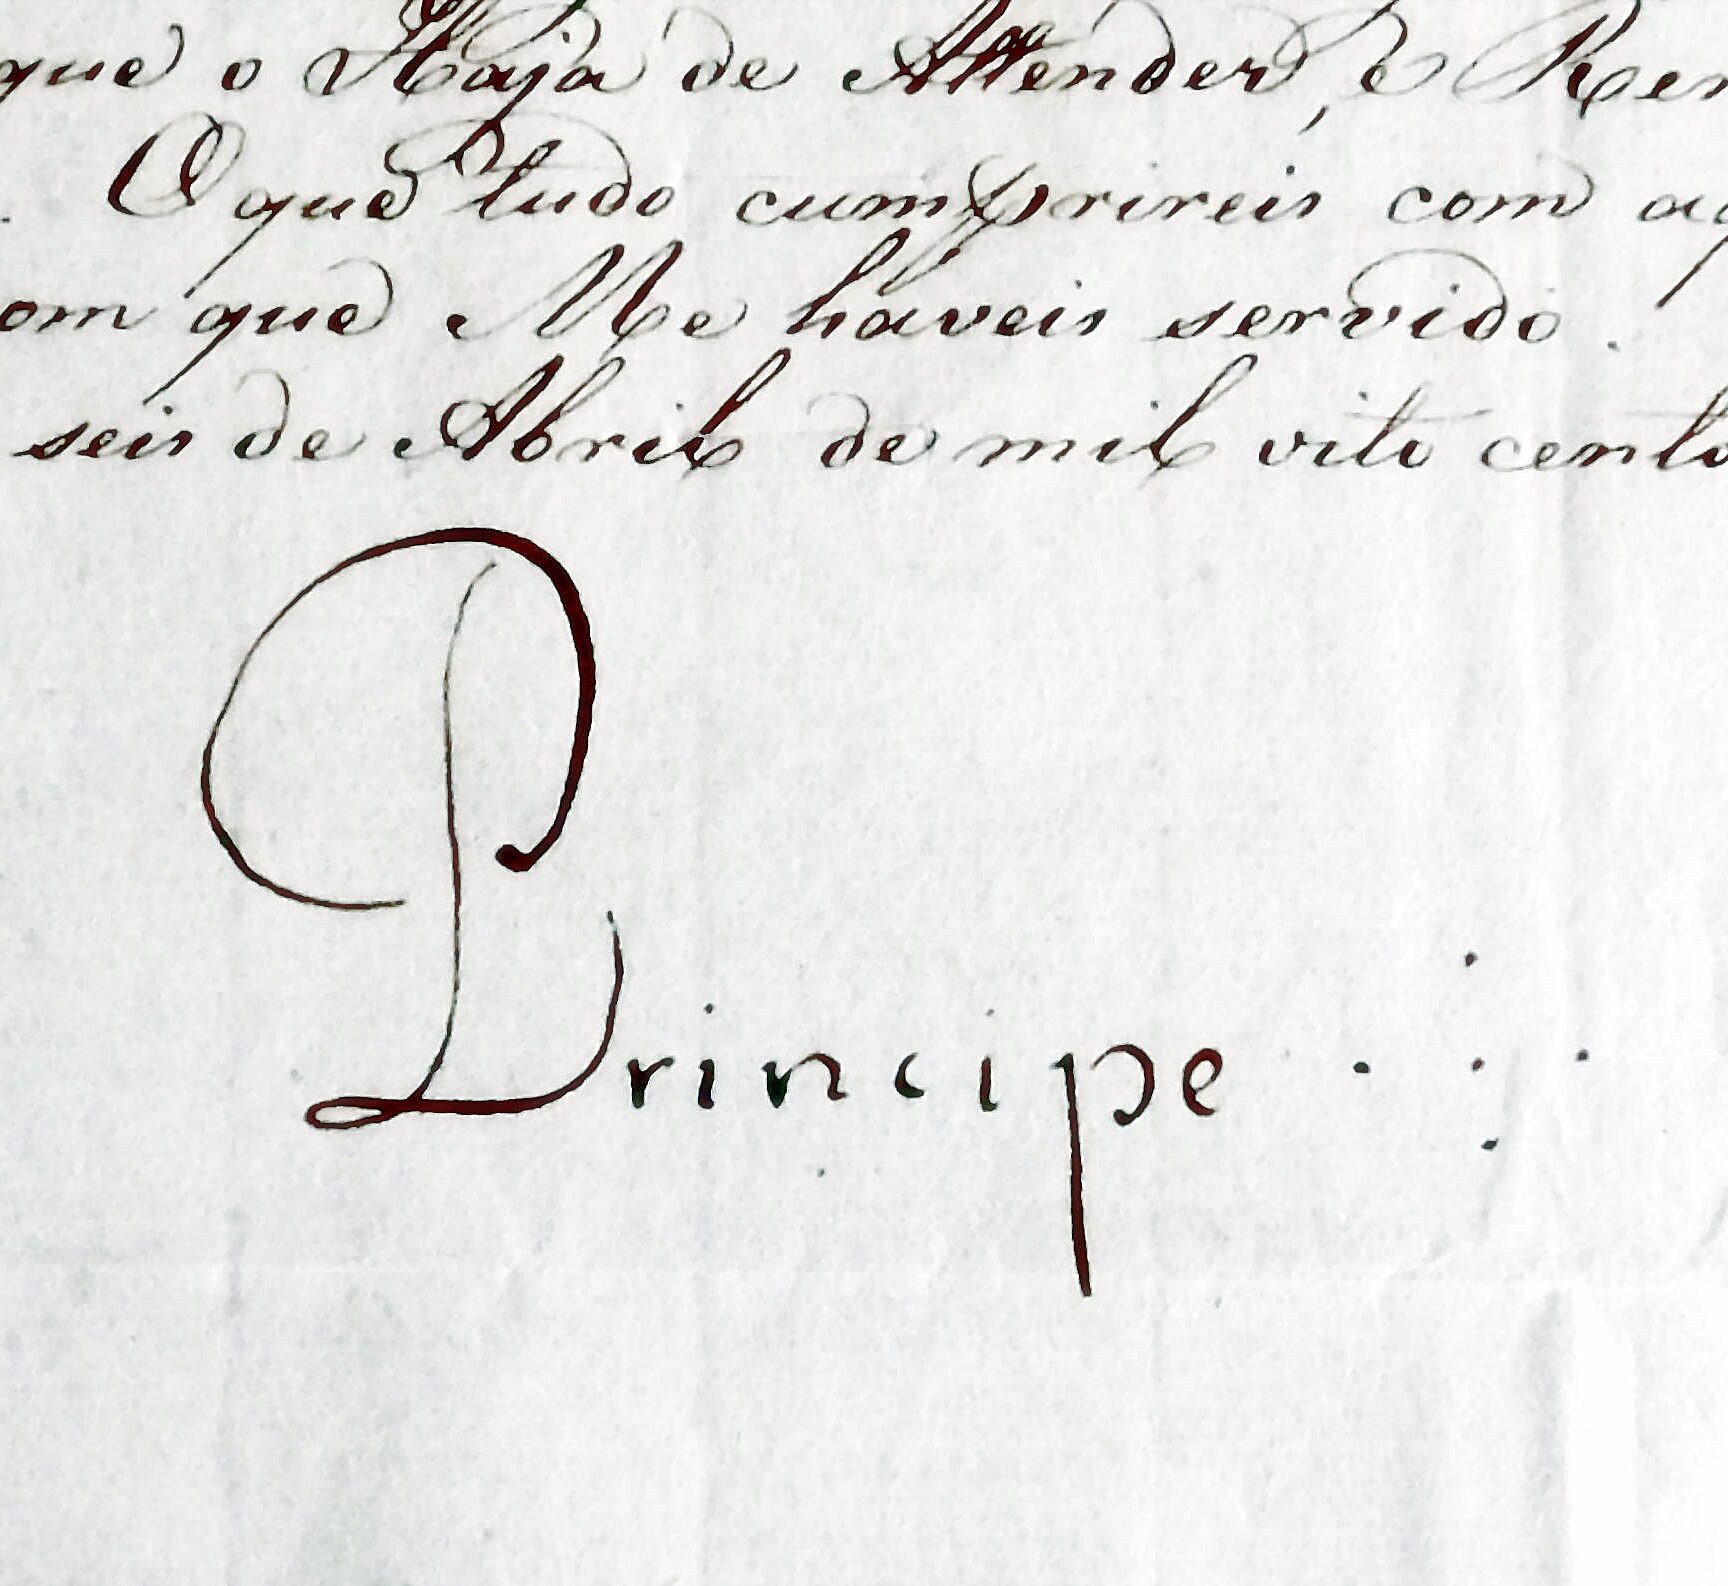 que o Haja de Attender, e Rem
. O que tudo cumprireis com aq
om que Me haveis servido.
seis de Abril de mil oito cento
Principe . : .